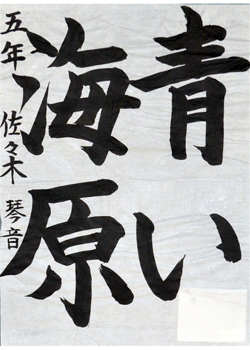 青い
海原
五年 佐々木 琴音